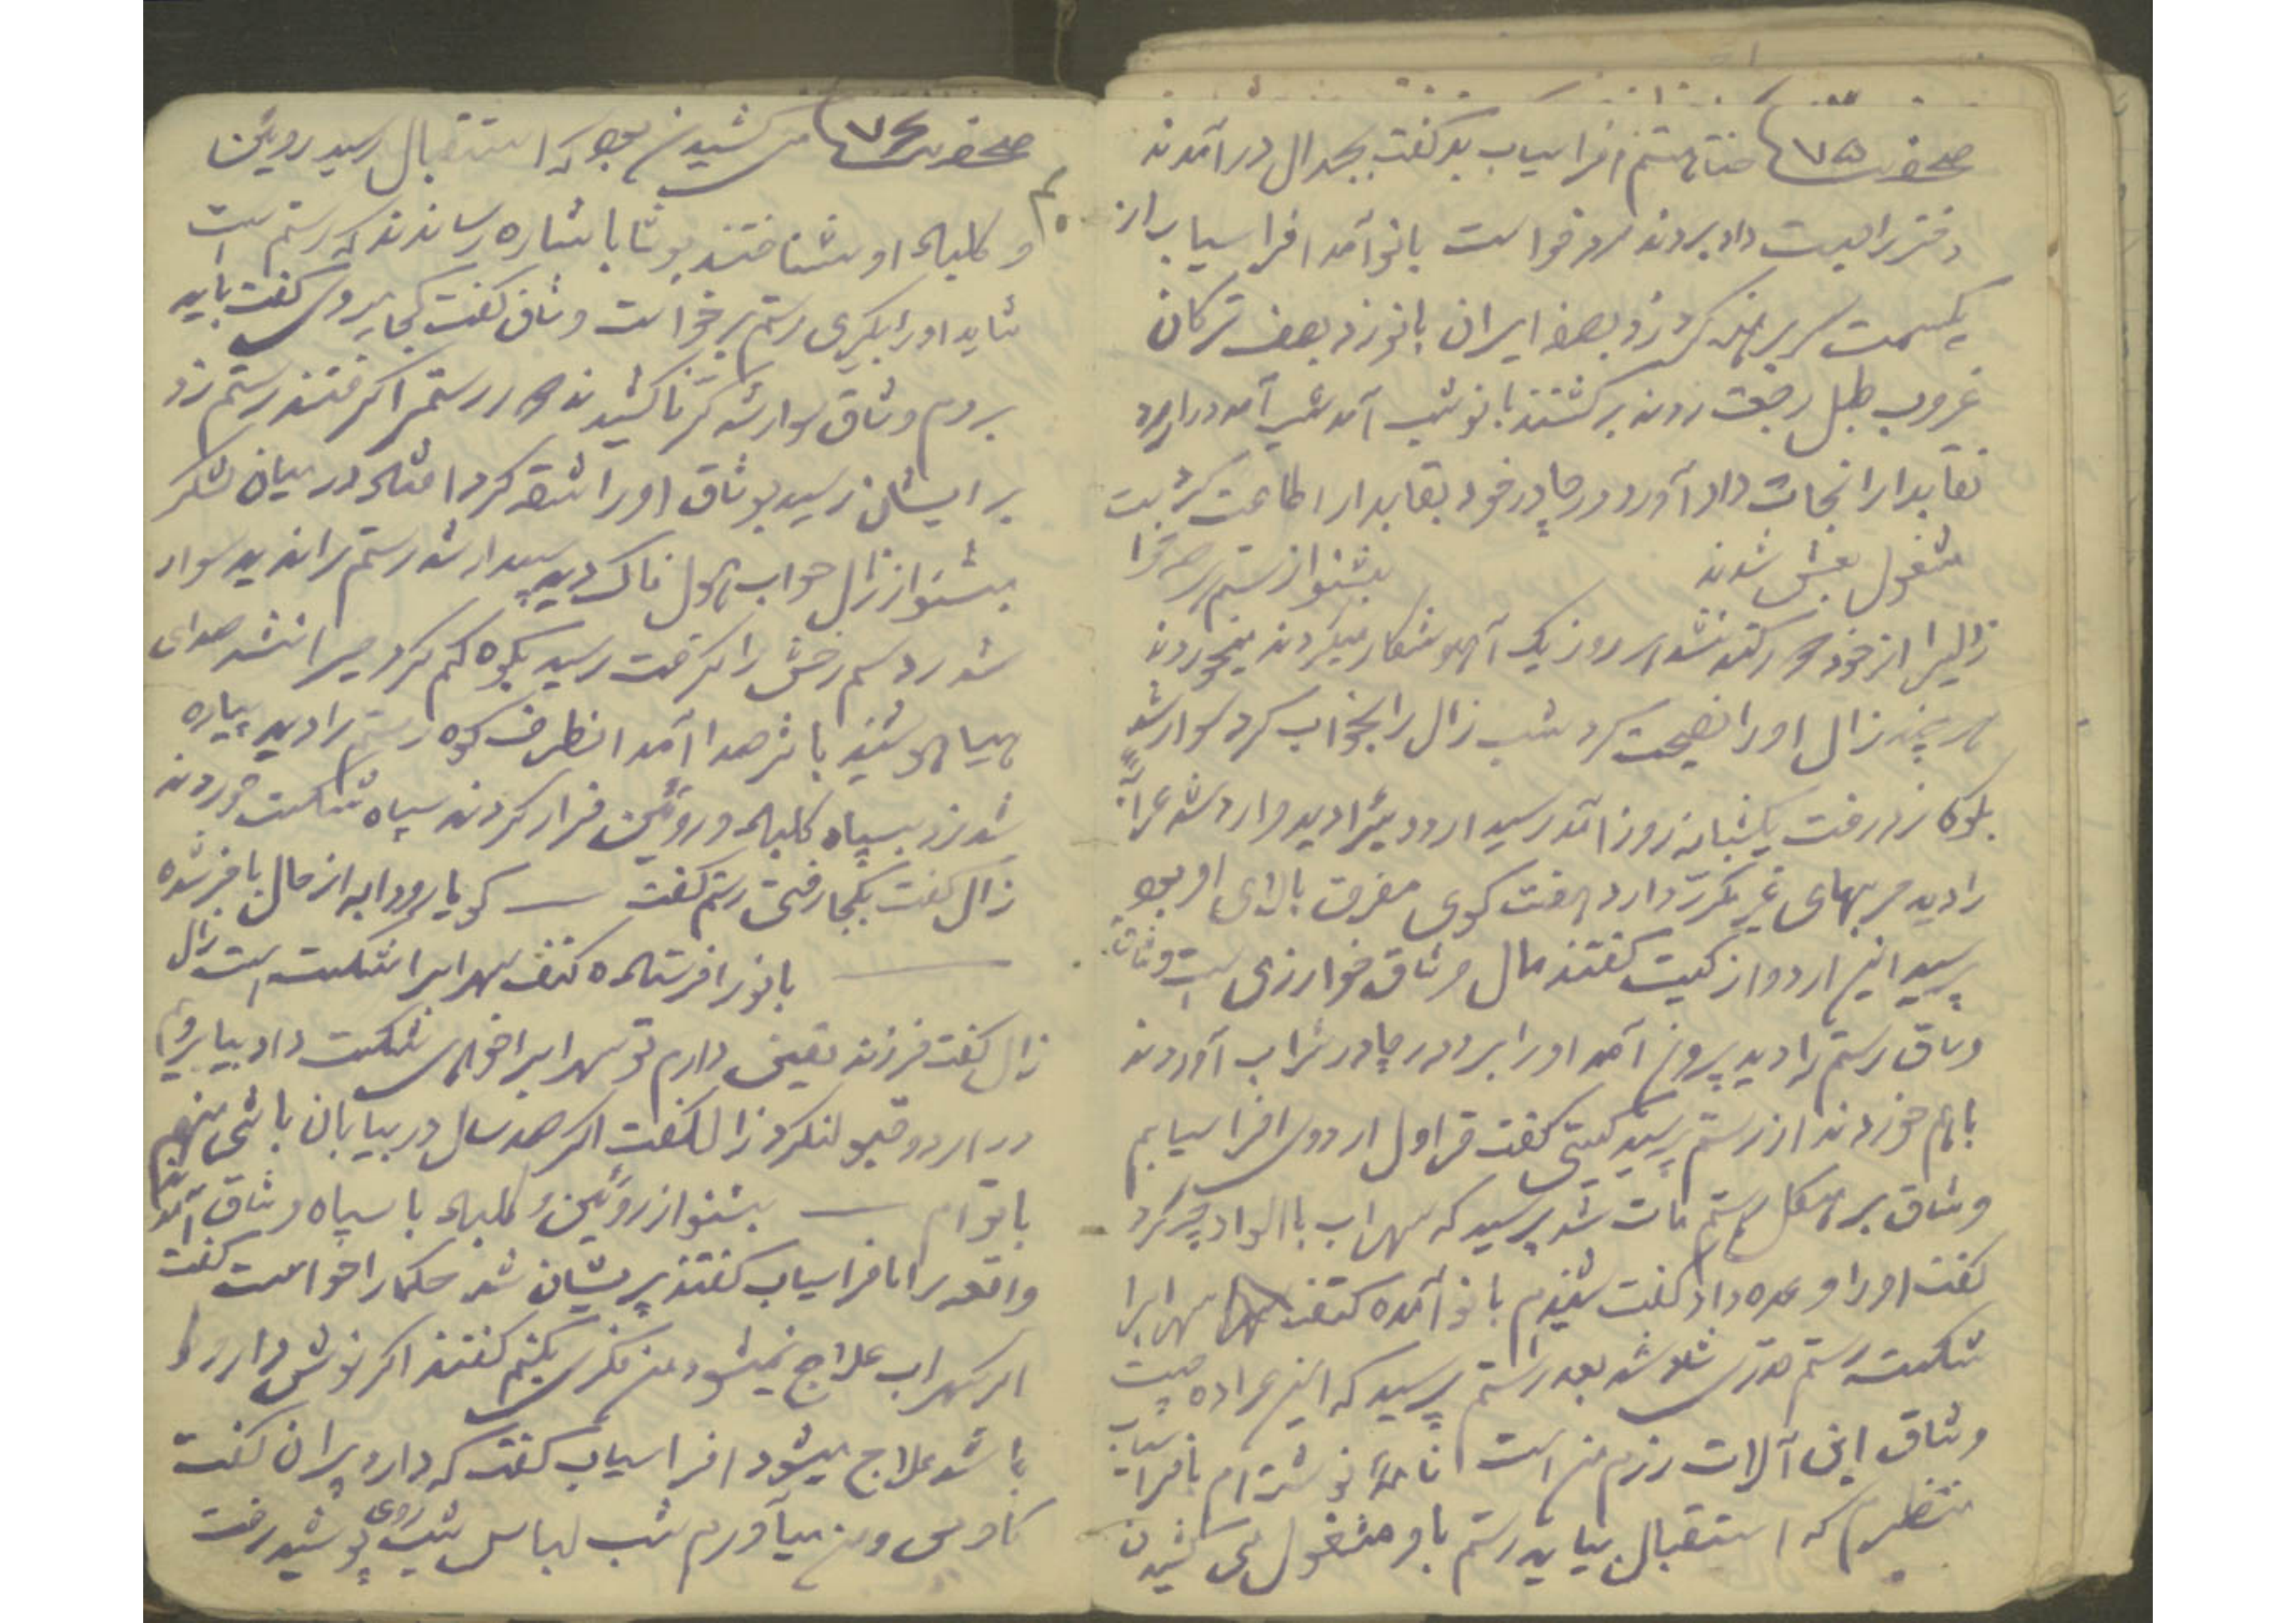 صفحه ۷۵ افراسیاب بد گفت بجدال در آمدند
دختر را دست داد بردند مرد خواست بانو آمد افراسیاب از
یکسمت سر برهنه کرد زد بصف ایران بانو زد بصف ترکان
غروب طبل رجعت زدند برگشتند بانو شب آمد
نقابدار را نجات داد آورد در چادر خود نقابدار اطاعت کرد
مشغول بعیش شدند بشنو از رستم
زالیرا از خود نشد هر روز یک آهو شکار میکردند میخوردند
هر چند زال اورا نصیحت کرد شب زال را بخواب کرد سوار شد
بکوه زد رفت یکشبانه روز آمد رسید اردوئیرا دید وارد شد
را دید حربهای غیر مکرر دارد هفت گوی مفرق بالای او بود
پرسید این اردو از کیست گفتند مال وثاق خوارزمی است وثاق
وثاق رستم را دید بیرون آمد اورا برد در چادر شراب آوردند
باهم خوردند از رستم پرسید کیستی گفت قراول اردوی افراسیابم
وثاق بر هیکل رستم مات شد پرسید که سهراب با الواد چه کرد
گفت اورا وعده داد گفت شنیدم بانو آمده کتف سهرابرا
شکسته رستم قدری شاد شد بعد رستم پرسید که این عراده چیست
وثاق این آلات رزم من است نامه نوشته ام بافراسیاب
منتظرم که استقبال بیاید رستم با او مشغول می کشیدن
صفحه ۷۶ می کشیدن بود که استقبال رسید روئین
و کلباد اورا شناختند بوثاق باشاره رساندند که رستم است
شاید اورا بگیری رستم برخواست وثاق گفت کجا میروی گفت باید
بروم وثاق سوار شد کرنا کشیدند دور رستمرا گرفتند رستم زد
بر ایشان رسید بوثاق اورا شقه کرد افتاد در میان لشکر
بشنو از زال خواب هول ناک دید بیدار شد رستم را ندید سوار
شد رد سم رخش را گرفت رسید بکوه گم کرد حیران شد صدای
هیاهو شنید باثر صدا آمد انطرف کوه رستم را دید پیاده
شد زد بسپاه کلباد و روئین فرار کردند سپاه شکست خوردند
زال گفت بکجا رفتی رستم گفت — گویا رودابه از حال با خبر شده
— بانو را فرستاده کتف سهرابرا شکسته است زال
زال گفت فرزند یقین دارم تو سهرابرا خواهی شکست داد بیا برویم
در اردو قبول نکرد زال گفت اگر صد سال در بیابان باشی منهم
با توام — بشنو از روئین و کلباد با سپاه وثاق آمدند
واقعه را بافراسیاب گفتند پریشان شد حکما را خواست گفت
اگر سهراب علاج نمیشود من فکری بکنم گفتند اگر نوش دارو
باشد علاج میشود افراسیاب گفت که دارد پیران گفت
کاوس و من میآورم شب لباس شب روی پوشید رفت